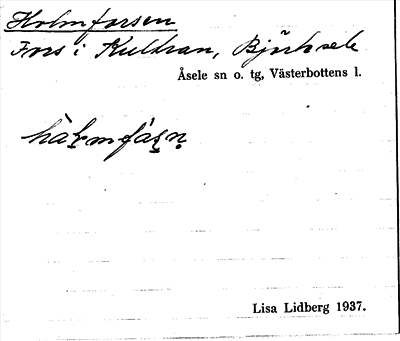 Holmforsen
Fors i Kultran, Björksele
Åsele sn o. tg, Västerbottens l.
Lisa Lidberg 1937.